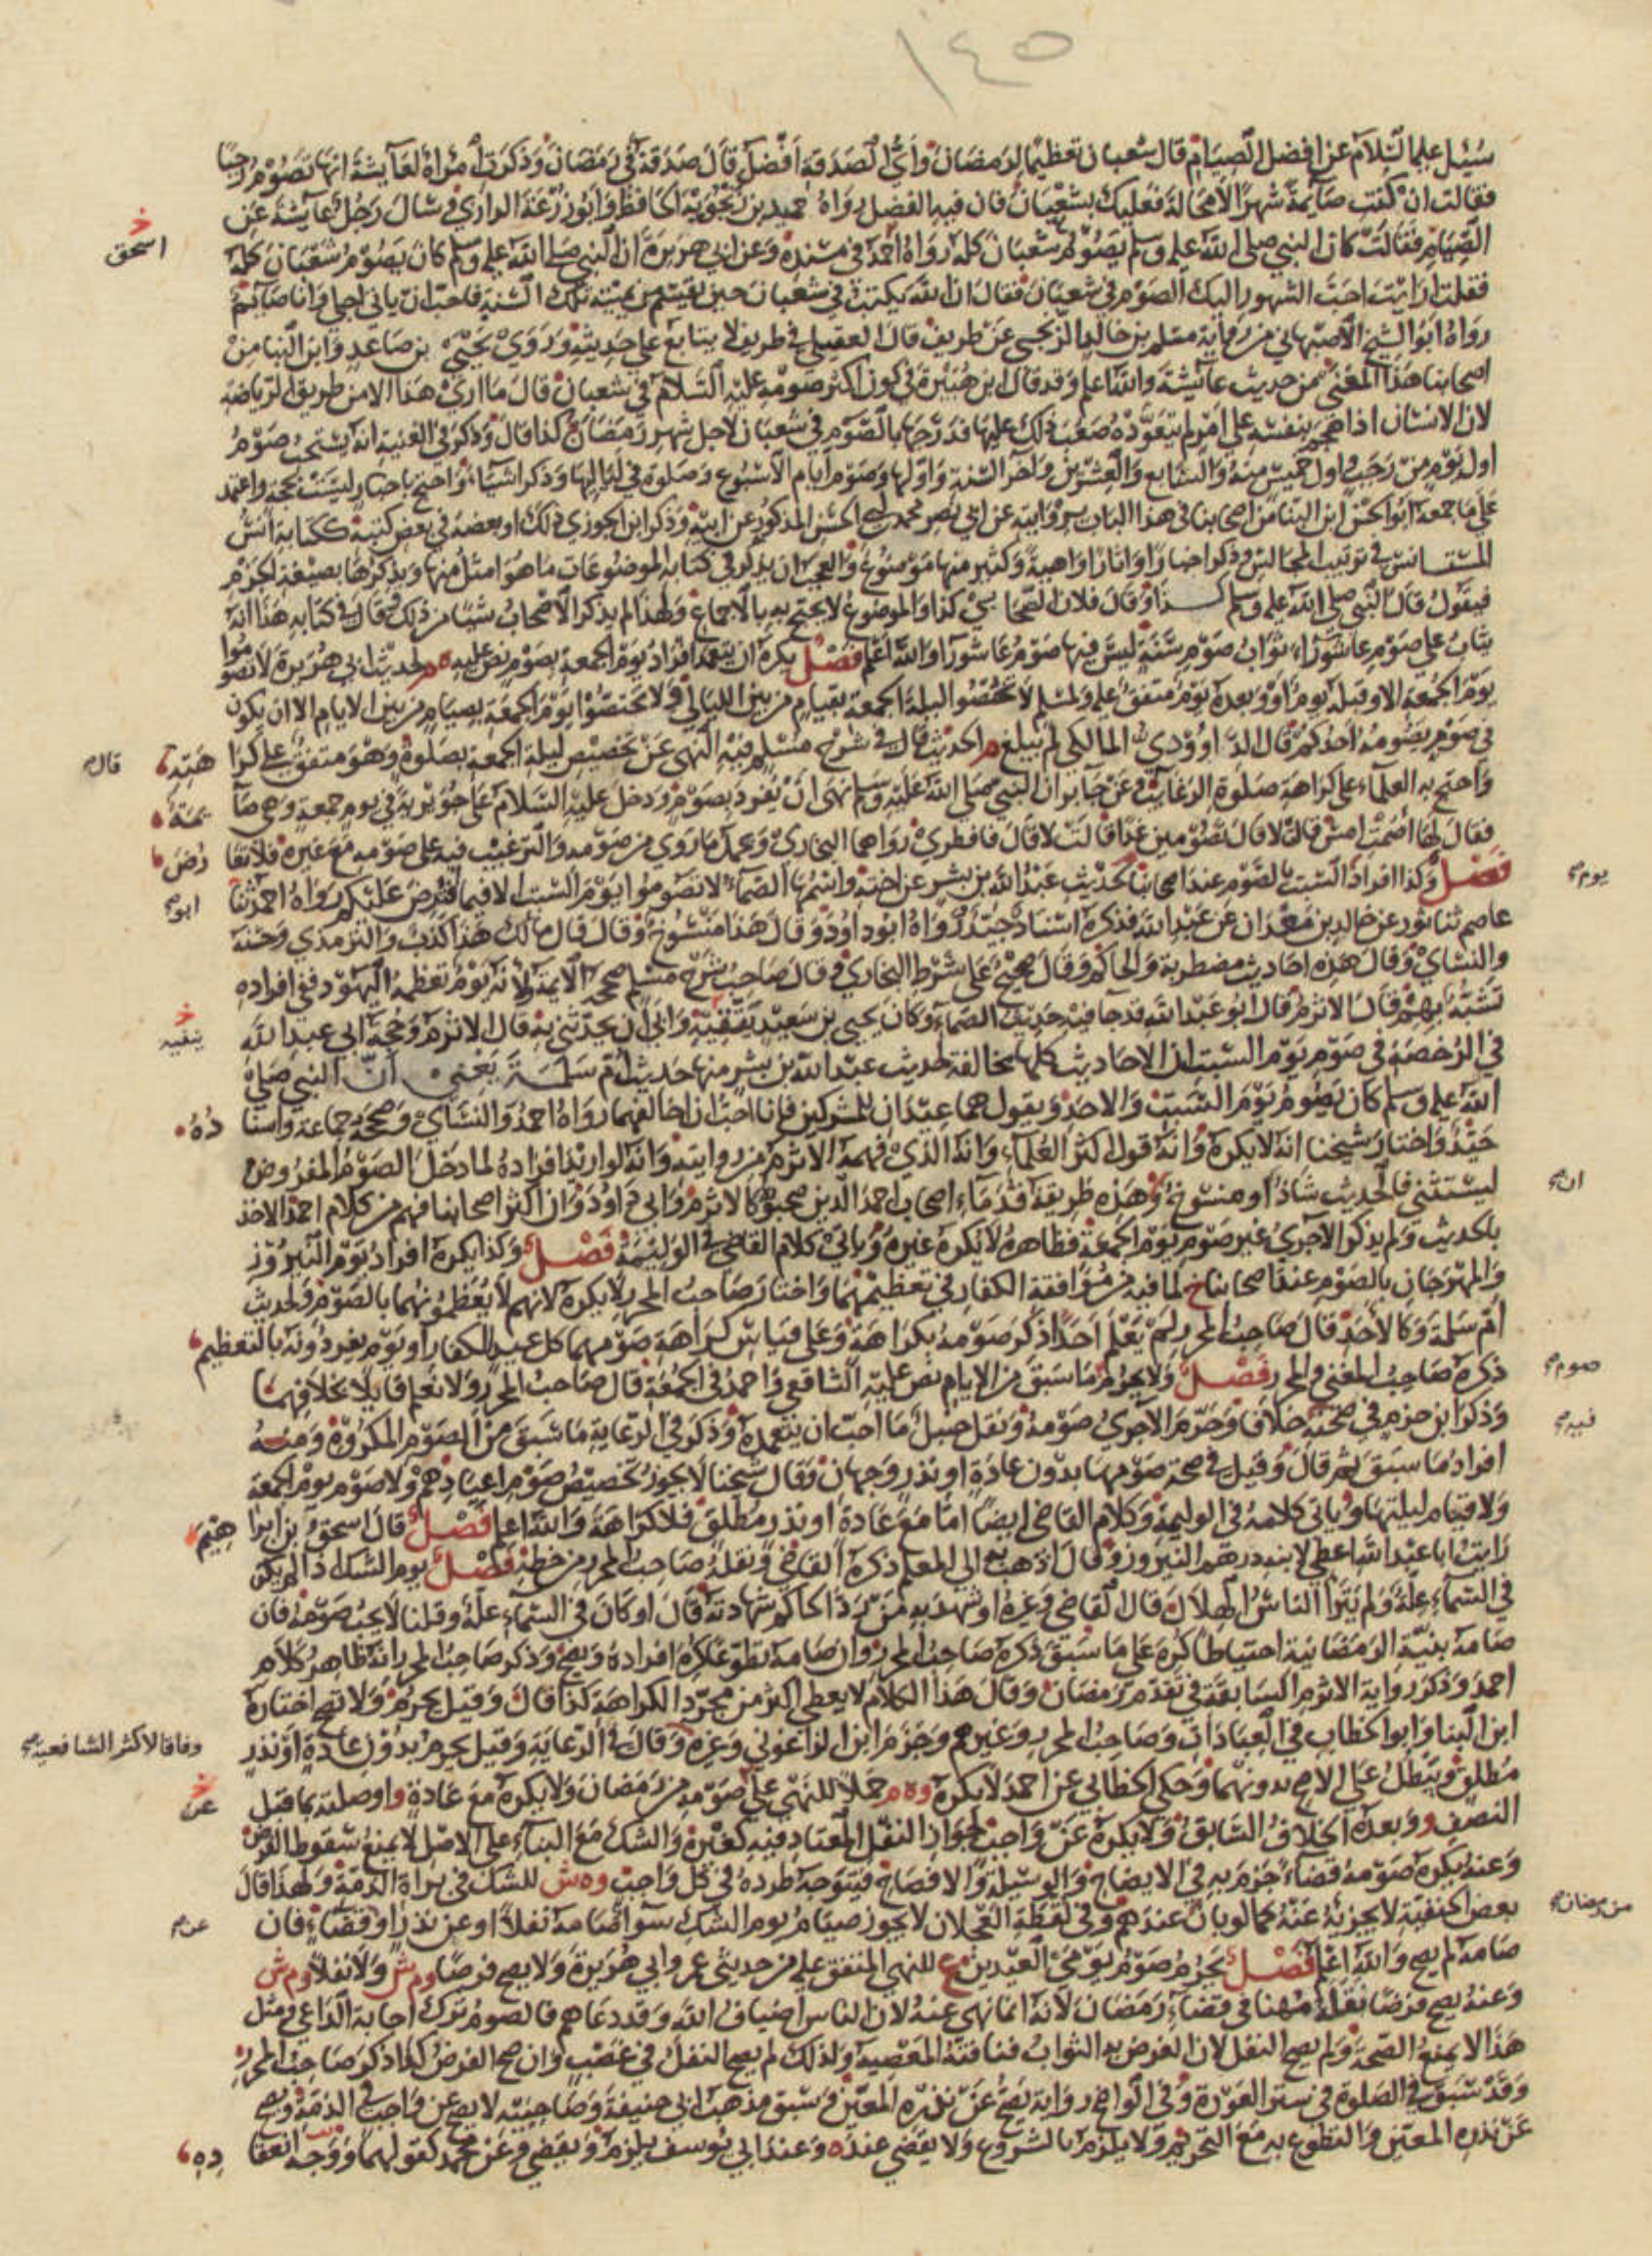 ١٤٥
سئل عليه السلام عن افضل الصيام قال شعبان تعظيما لرمضان واي الصدقة افضل قال صدقة في رمضان وذكرت امرأة لعائشة انها تصوم رجبا
فقالت ان كنت صائمة شهرا لا محالة فعليك بشعبان فان فيه الفضل رواه حميد بن زنجويه الحافظ وابو زرعة الرازي وسال رجل عائشة عن
الصيام فقالت كان النبي صلى الله عليه وسلم يصوم شعبان كله رواه احمد في مسنده وعن ابي هريرة ان النبي صلى الله عليه وسلم كان يصوم شعبان كله
اسحق
فقلت ارايت احب الشهور اليك الصوم في شعبان فقال ان الله يكتب في شعبان حين يقسم من يميته تلك السنة فاحب ان ياتي اجلي وانا صائم
رواه ابو الشيخ الاصبهاني من رواية مسلم بن خالد الزنجي عن طريف قال العقيلي في طريف لا يتابع على حديثه وروى يحيى بن صاعد وابن البنا من
اصحابنا هذا المعنى من حديث عائشة والله اعلم وقد قال ابن هبيرة في كون اكثر صومه عليه السلام في شعبان قال ما ارى هذا الا من طريق الرياضة
لان الانسان اذا هجم بنفسه على امر لم يتعوده صعب ذلك عليها فدرجها بالصوم في شعبان لاجل شهر رمضان كذا قال وذكر في الغنية انه يستحب صوم
اول يوم من رجب واول خميس منه والسابع والعشرين واخر السنة واولها وصوم ايام الاسبوع وصلوة في لياليها وذكر اشياء واحتج باخبار ليست بحجة واعتمد
على ما جمعه ابو الحسن ابن البنا من اصحابنا في هذا الباب بروايته عن ابي نصر محمد بن ابي الحسن المذكور عن ابيه وذكر ابن الجوزي ذلك او بعضه في بعض كتبه ككتابه انس
المستانس في ترتيب المجالس وذكر اخبارا واثارا واهية وكثير منها موضوع والعجب انه يذكر في كتابه الموضوعات ما هو امثل منها ويذكرها بصيغة الجزم
فيقول قال النبي صلى الله عليه وسلم كذا وقال فلان الصحابي كذا والموضوع لا يحتج به بالاجماع ولهذا لم يذكر الاصحاب شيئا من ذلك وقال في كتابه هذا انه
يثاب على صوم عاشوراء ثواب صوم سنة ليس فيها صوم عاشورا والله اعلم فصل يكره ان يتعمد افراد يوم الجمعة بصوم نص عليه ه م لحديث ابي هريرة لا تصوموا
يوم الجمعة الا وقبله يوم او وبعده يوم متفق عليه ولمسلم لا تخصوا ليلة الجمعة بقيام من بين الليالي ولا تختصوا يوم الجمعة بصيام من بين الايام الا ان يكون
في صوم يصومه احدكم قال الداوودي المالكي لم يبلغ م الحديث قال في شرح مسلم فيه النهي عن تخصيص ليلة الجمعة بصلوة وهو متفق على كراهته
قال
واحتج به العلماء على كراهة صلوة الرغائب وعن جابر ان النبي صلى الله عليه وسلم نهى ان يفرد بصوم ودخل عليه السلام على جويرية في يوم جمعة وهي صائمة
فقال لها اصمت امس قالت لا قال تصومين غدا قالت لا قال فافطري رواهما البخاري ويحمل ما روي من صومه والترغيب فيه على صومه مع غيره فلا تعارض
فصل وكذا افراد السبت بالصوم عند اصحابنا لحديث عبد الله بن بشر عن اخته واسمها الصماء لا تصوموا يوم السبت الا فيما افترض عليكم رواه احمد ثنا
يوم
ابو
عاصم ثنا ثور عن خالد بن معدان عن عبد الله فذكره اسناد جيد ورواه ابو داود وقال هذا منسوخ وقال قال مالك هذا كذب والترمذي وحسنه
والنسائي وقال هذه احاديث مضطربة والحاكم وقال صحيح على شرط البخاري وقال صاحب شرح مسلم صححه الايمة ولانه يوم تعظمه اليهود ففي افراده
تشبه بهم قال الاثرم قال ابو عبد الله قد جا فيه حديث الصماء وكان يحيى بن سعيد يتقيه وابى ان يحدثني به قال الاثرم وحجة ابي عبد الله
ينفيه
في الرخصة في صوم يوم السبت ان الاحاديث كلها مخالفة لحديث عبد الله بن بشر منها حديث ام سلمة يعني ان النبي صلى
الله عليه وسلم كان يصوم يوم السبت والاحد ويقول هما عيدان للمشركين فانا احب ان اخالفهما رواه احمد والنسائي وصححه جماعة واسناده
جيد واختار شيخنا انه لا يكره وانه قول اكثر العلماء وانه الذي فهمه الاثرم من روايته وانه لو اريد افراده لما دخل الصوم المفروض
ليستثنى فالحديث شاذ او منسوخ وهذه طريقة قدماء اصحاب احمد الذين صحبوه كالاثرم وابي داود وان اكثر اصحابنا فهم من كلام احمد الاخذ
ان
بالحديث ولم يذكر الاجري غير صوم يوم الجمعة فظاهره لا يكره غيره وياتي كلام القاضي في الوليمة فصل وكذا يكره افراد يوم النيروز
والمهرجان بالصوم عند اصحابنا خ لما فيه من موافقة الكفار في تعظيمهما واختار صاحب المحرر لا يكره لانهم لا يعظمونهما بالصوم ولحديث
ام سلمة وكالاحد قال صاحب المحرر لم يعلم احدا ذكر صومه بكراهة وعلى قياس كراهة صومهما كل عيد للكفار او يوم يفردونه بالتعظيم
ذكره صاحب المغني والمحرر فصل ولا يحرم ما سبق من الايام نص عليه الشافعي واحمد في الجمعة قال صاحب المحرر ولا نعلم قايلا بخلافهما
صوم
وذكر ابن حزم في صحته خلاف وحرم الاجري صومه ونقل حنبل ما احب ان يتعمده وذكر في الرعاية ما سبق من الصوم المكروه ومنه
فيه
افراد ما سبق ثم قال وقيل في صحة صومها بدون عادة او نذر وجهان وقال شيخنا لا يجوز تخصيص صوم اعيادهم ولا صوم يوم الجمعة
ولا قيام ليلتها وياتي كلامه في الوليمة وكلام القاضي ايضا اما مع عادة او نذر مطلق فلا كراهة والله اعلم فصل قال اسحق بن ابراهيم
رايت ابا عبد الله اعطى لابنه درهم النيروز وقال اذهب به الى المعلم ذكره القاضي ونقله صاحب المحرر من خطه فصل يوم الشك اذا لم يكن
في السماء علة ولم يترا الناس الهلال قال القاضي وغيره او شهد به من رد الحاكم شهادته قال او كان في السماء علة وقلنا لا يجب صومه فان
صامه بنية الرمضانية احتياطا كره على ما سبق ذكره صاحب المحرر وان صامه تطوعا كره افراده ويصح وذكر صاحب المحرر انه ظاهر كلام
احمد وذكر رواية الاثرم السابقة في تقدم رمضان وقال هذا الكلام لا يعطي اكثر من مجرد الكراهة كذا قال وقيل يحرم ولا يصح اختاره
ابن البنا وابو الخطاب في العبادات وصاحب المحرر وغيرهم وجزم ابن الزاغوني وغيره وقال في الرعاية وقيل يحرم بدون عادة او نذر
وفاقا لاكثر الشافعية
مطلق ويبطل على الاصح بدونهما وحكى الخطابي عن احمد لا يكره وه م حملا للنهي على صومه من رمضان ولا يكره مع عادة و او صلته بما قبل
عن
النصف و وبعده الخلاف السابق ولا يكره عن واجب لجواز النفل المعتاد فيه كغيره والشك مع البناء على الاصل لا يمنع سقوط الفرض
وعنه يكره صومه قضاء جزم به في الايضاح والوسيلة والافصاح فيتوجه طرده في كل واجب وه ش للشك في براة الذمة ولهذا قال
بعض الحنفية لا يجزيه عنه كما لو بان عندهم وفي لقطة العجلان لا يجوز صيام يوم الشك سوا صامه نفلا او عن نذر او قضاء فان
من رمضان
عن
صامه لم يصح والله اعلم فصل يحرم صوم يومي العيدين ع للنهي المتفق عليه من حديثي عمر وابي هريرة ولا يصح فرضا وم ش ولا نفلا وم ش
وعنه يصح فرضا نقله مهنا في قضاء رمضان لانه انما نهي عنه لان الناس اضياف الله وقد دعاهم فالصوم ترك اجابة الداعي ومثل
هذا لا يمنع الصحة ولم يصح النفل لان الغرض به الثواب فنافته المعصية ولذلك لم يصح النفل في غصب وان صح الفرض كذا ذكر صاحب المحرر
وقد سبق في الصلوة في ستر العورة وفي الواضح رواية يصح عن نذره المعين وسبق مذهب ابي حنيفة وصاحبيه لا يصح عن واجب في الذمة ويصح
عن نذره المعين والتطوع به مع التحريم ولا يلزم بالشروع ولا يقضي عنده وعند ابي يوسف يلزم ويقضي وعن محمد كقولهما ووجه انعقاده